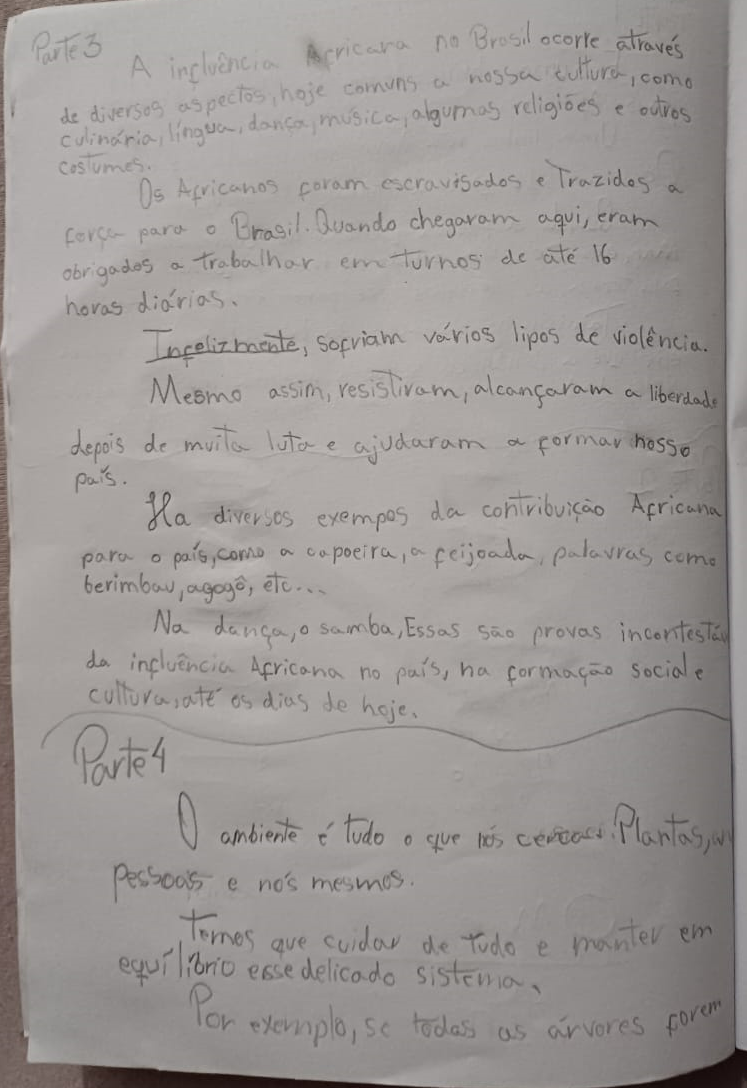 Parte 3
A influência Africana no Brasil ocorre através
de diversos aspectos, hoje comuns a nossa cultura, como
culinária, língua, dança, música, algumas religiões e outros
costumes.
Os Africanos foram escravisados e Trazidos a
força para o Brasil. Quando chegaram aqui, eram
obrigados a trabalhar em turnos de até 16
horas diárias.
Infelizmente, sofriam vários tipos de violência.
Mesmo assim, resistiram, alcançaram a liberdade
depois de muita luta e ajudaram a formar nosso
país.
Ha diversos exempos da contribuição Africana
para o país, como a capoeira, a feijoada, palavras como
berimbau, agogô, etc...
Na dança, o samba, Essas são provas incontestáv
da influência Africana no país, na formação social e
cultura, até os dias de hoje.
Parte 4
O ambiente é tudo o que nós Plantas,
pessoas e nós mesmos.
Temos que cuidar de tudo e manter em
equilíbrio esse delicado sistema.
Por exemplo, se todas as árvores forem